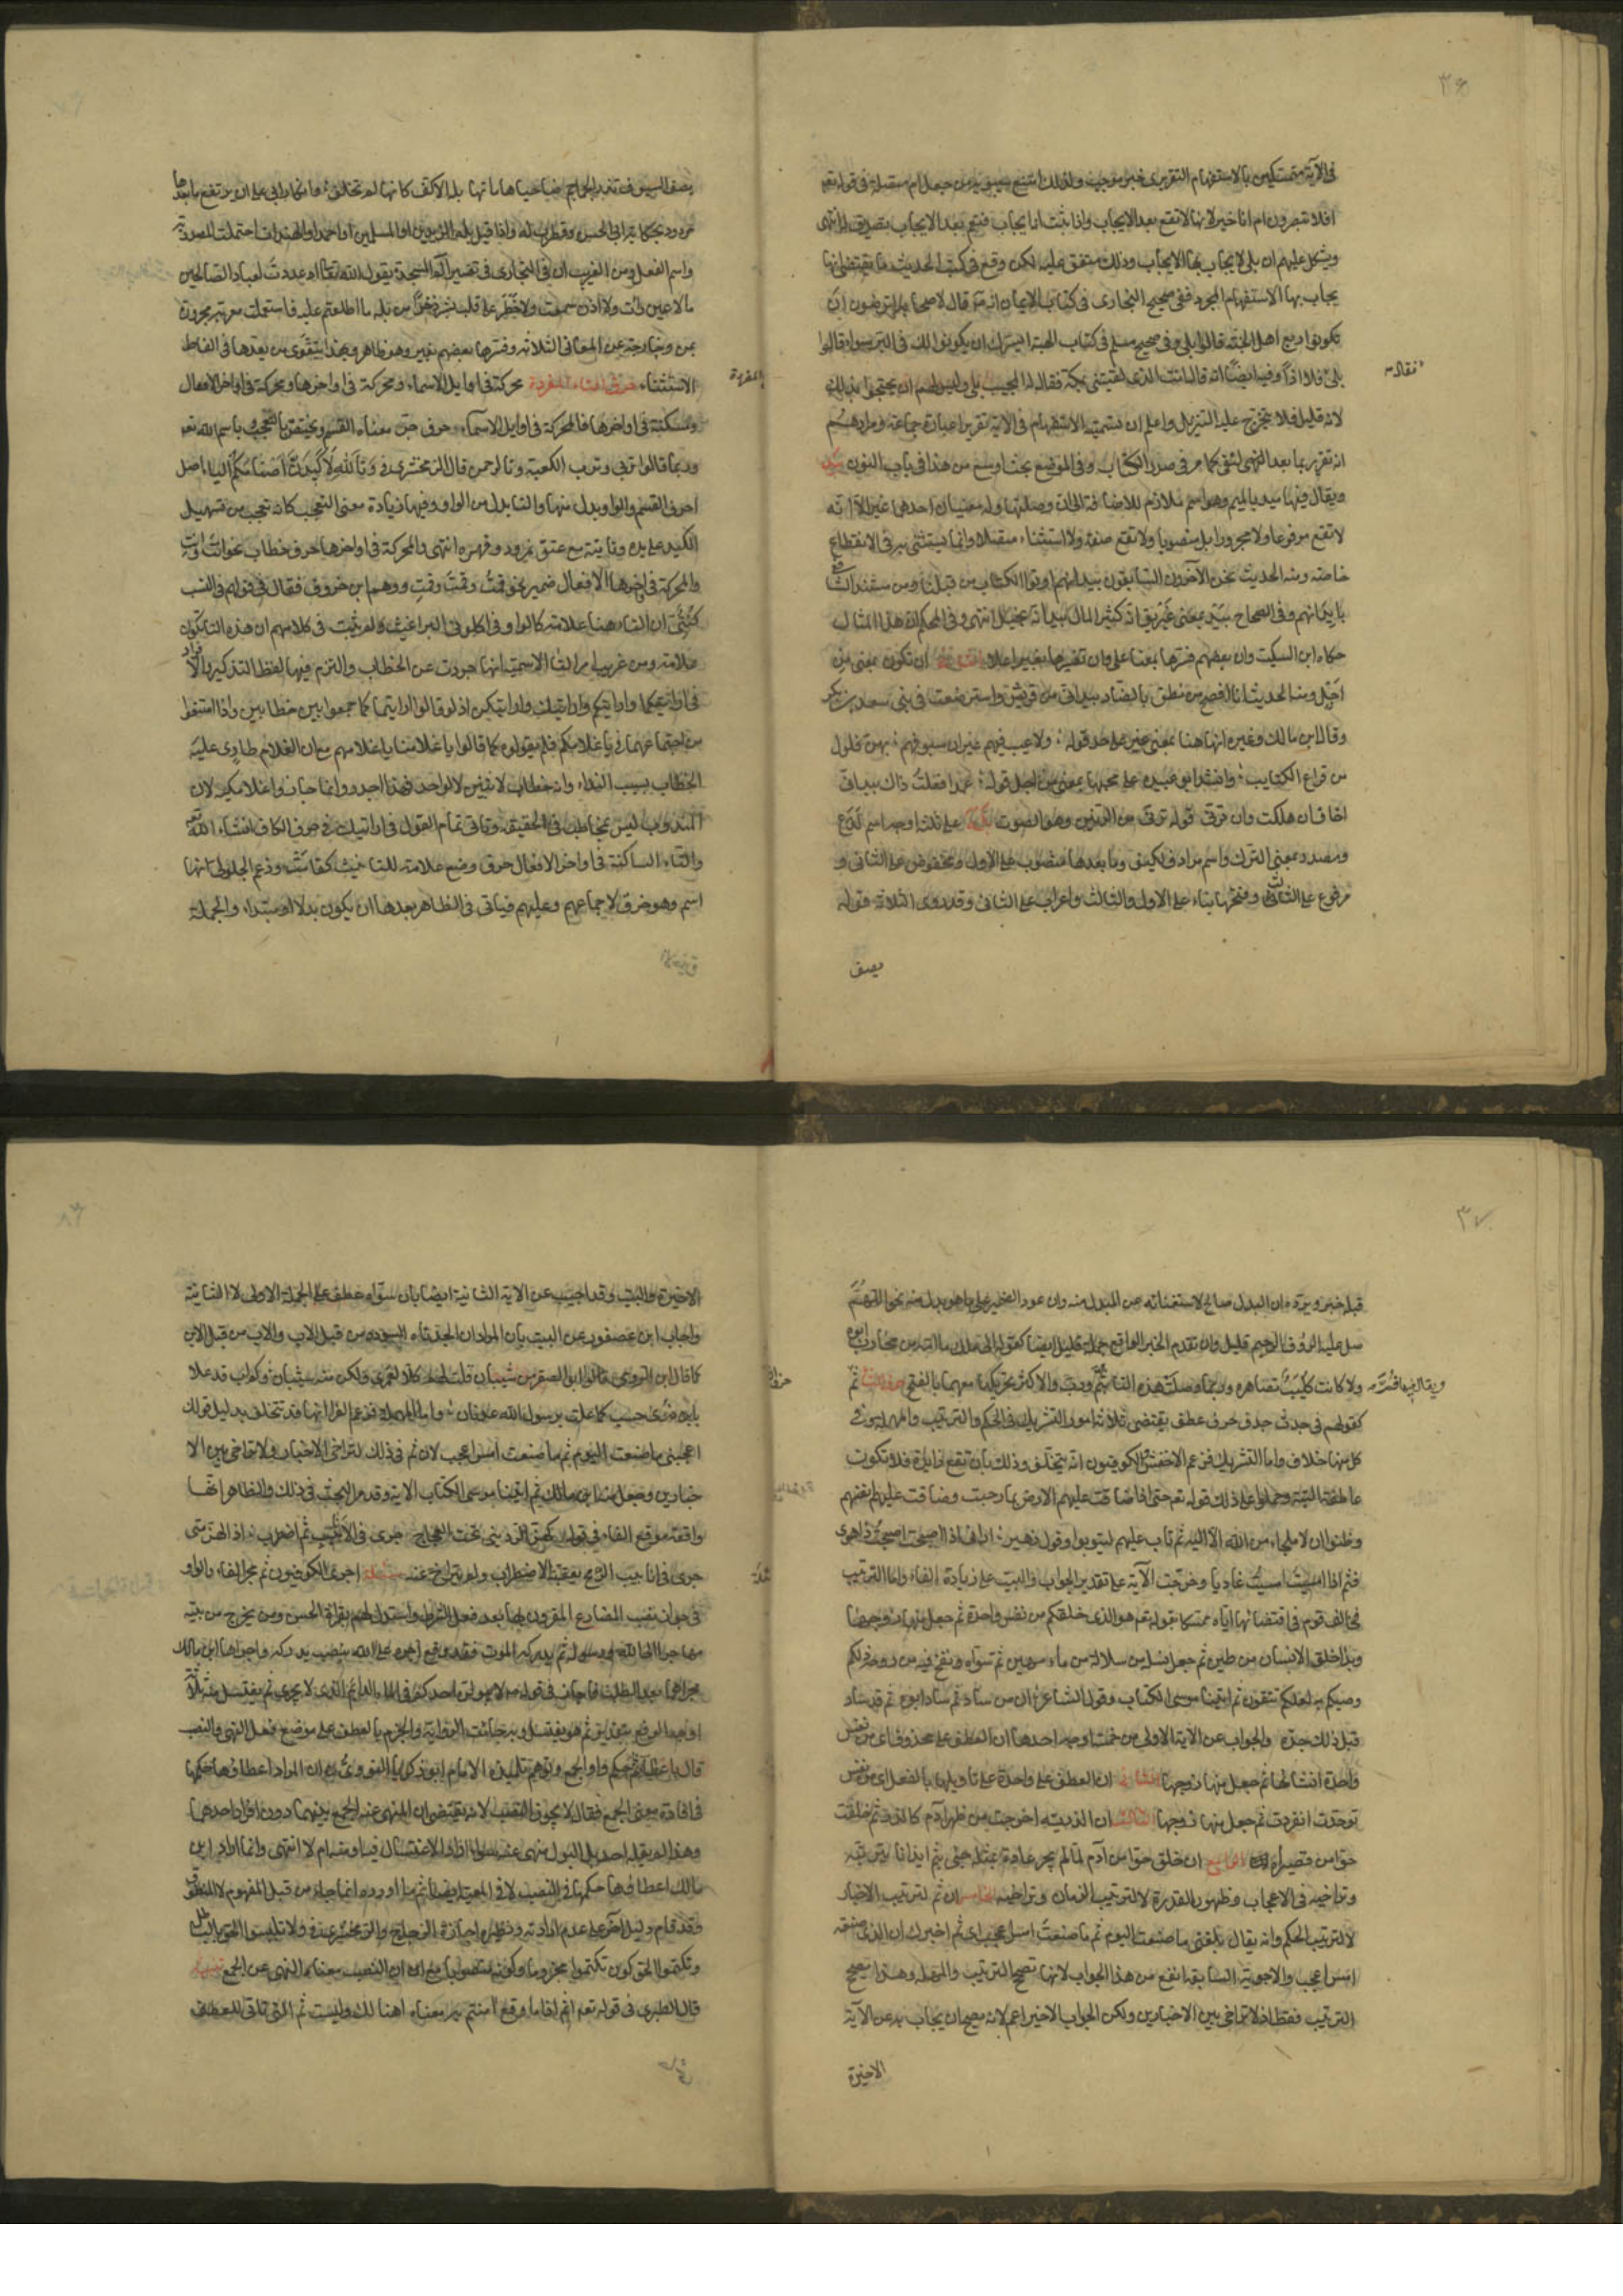 ٣٦
في الآية متمسكين بالاستفهام التقريري خبر موجب ولذلك امتنع سيبويه من جعل ام متصلة في قوله تعـ
افلا تبصرون ام انا خير لانها لا تقع بعد الايجاب واذا ثبت انه ايجاب فنعم بعد الايجاب تصديق له انتهى
ويشكل عليهم ان بلى لا يجاب بها الايجاب وذلك متفق عليه لكن وقع في كتب الحديث ما يقتضي انها
يجاب بها الاستفهام المجرد ففي صحيح البخاري في كتاب الايمان انه قال لاصحابه اترضون ان
تكونوا ربع اهل الجنة قالوا بلى وفي صحيح مسلم في كتاب الهبة ايسرك ان يكونوا لك في البر سواء قال
بلى قال فلا اذا وفيه ايضا انه قال انت الذي لقيتني بمكة فقال له المجيب بلى وليس لهم ان يحتجوا بذلك
لانه قليل فلا يتخرج عليه التنزيل واعلم ان تسمية الاستفهام في الاية تقريرا عبارة جماعة ومرادهم
انه تقرير بما بعد النفي كما مر في صدر الكتاب وفي الموضع بحث اوسع من هذا في باب النون بيد
ويقال فيها ميد بالميم وهو اسم ملازم للاضافة الى ان وصلتها وله معنيان احدهما غير الا انه
لا تقع مرفوعا ولا مجرورا بل منصوبا ولا تقع صفة ولا استثناء متصلا وانما يستثنى به في الانقطاع
خاصة ومنه الحديث نحن الآخرون السابقون بيد انهم اوتوا الكتاب من قبلنا
وفي الصحاح بيد بمعنى غير يق انه كثير المال بيد انه بخيل انتهى وفي المحكم ان هذا المثال
حكاه ابن السكيت وان بعضهم فسرها بمعنى على وان تفسيرها بغير اعلا والثاني ان تكون بمعنى من
اجل ومنه الحديث انا افصح من نطق بالضاد بيد اني من قريش واسترضعت في بني سعد بن بكر
وقال ابن مالك وغيره انها هنا بمعنى غير على حد قوله ولا عيب فيهم غير ان سيوفهم بهن فلول
من قراع الكتايب وانشد ابو عبيده على مجيها بمعنى من اجل قوله عمدا فعلت ذاك بيد اني
اخاف ان هلكت وان ترني قوله ترني من الرنين وهو الصوت بله على ثلثة اوجه اسم لدع
ومصدر بمعنى الترك واسم مرادف لكيف وما بعدها منصوب على الاول ومخفوض على الثاني و
مرفوع على الثالث وفتحها بناء على الاول والثالث واعراب على الثاني وقد روى الثلاثة قوله
يصف
فقال له
يصف السيوف تذر الجماجم ضاحيا هاماتها بله الاكف كانها لم تخلق وانكار ابي علي ان يرتفع ما بعدها
مردود بحكاية ابي الحسن وقطرب له واذا قيل بله الزيدين او المسلمين او احمد او الهندات احتملت المصدرية
واسم الفعل ومن الغريب ان في البخاري في تفسير الم السجدة يقول الله تعالى اعددت لعبادي الصالحين
ما لا عين رات ولا اذن سمعت ولا خطر على قلب بشر ذخرا من بله ما اطلعتم عليه فاستعملت معربة مجرورة
بمن وخارجة عن المعاني الثلاثة وفسرها بعضهم بغير وهو ظاهر وبهذا يتقوى من يعدها في الفاظ
الاستثناء حرف التاء المفردة محركة في اوايل الاسماء ومحركة في اواخرها ومحركة في اواخر الافعال
ومسكنة في اواخرها فالمحركة في اوايل الاسماء حرف جر معناه القسم ويختص بالتعجب وباسم الله تعـ
وربما قالوا تربي وترب الكعبة وتالرحمن قال الزمخشري في وتالله لاكيدن اصنامكم الباء اصل
احرف القسم والواو بدل منها والتا بدل من الواو وفيها زيادة معنى التعجب كانه تعجب من تسهيل
الكيد على يده وتاتيه مع عتو نمرود وقهره انتهى والمحركة في اواخرها حرف خطاب نحو انت وانت
والمحركة في اواخر الافعال ضمير نحو قمت وقمت وقمت ووهم ابن خروف فقال في قولهم في النسب
كنتي ان التاء هنا علامة كالواو في اكلوني البراغيث ولم يثبت في كلامهم ان هذه التا تكون
علامة ومن غريب امر التا الاسمية انها جردت عن الخطاب والتزم فيها لفظ التذكير والافراد
في ارايتكما وارايتكم وارايتك وارايتكن اذ لو قالوا ارايتماكما جمعوا بين خطابين واذا امتنعوا
من اجتماعهما في يا غلامكم فلم يقولوه كما قالوا يا غلامنا ويا غلامهم مع ان الغلام طاري عليه
الخطاب بسبب النداء وانه خطاب لاثنين لا لواحد فهذا اجدر وانما جاز واغلامكيه لان
المندوب ليس بمخاطب في الحقيقة وياتي تمام القول في ارايتك في حرف الكاف انشاء الله تعـ
والتاء الساكنة في اواخر الافعال حرف وضع علامة للتانيث كقامت وزعم الجلولي انها
اسم وهو خرق لاجماعهم وعليهم فياتي في الظاهر بعدها ان يكون بدلا او مبتداء والجملة
المفردة
٣٧
قبله خبر ويرده ان البدل صالح للاستغناء به عن المبدل منه وان عود الضمير على ما هو بدل منه نحو اللهم
صل عليه الرؤف الرحيم قليل وان تقدم الخبر الواقع جملة قليل ايضا كقوله الى ملك ما امه من محارب ابوه
ولا كانت كليب تصاهره وربما وصلت هذه التا بثم ورب والاكثر تحريكها معهما بالفتح حرف الثا ثم
ويقال فيها فم
كقولهم في جدث جدف حرف عطف يقتضي ثلاثة امور التشريك في الحكم والترتيب والمهلة وفي
كل منها خلاف واما التشريك فزعم الاخفش والكوفيون انه يتخلف وذلك بان تقع زايدة فلا تكون
عاطفة البتة وحملوا على ذلك قوله تعـ حتى اذا ضاقت عليهم الارض بما رحبت وضاقت عليهم انفسهم
وظنوا ان لا ملجاء من الله الا اليه ثم تاب عليهم ليتوبوا وقول زهير اراني اذا اصبحت اصبحت ذا هوى
فثم اذا امسيت امسيت غاديا وخرجت الآية على تقدير الجواب والبيت على زيادة الفاء واما الترتيب
فخالف قوم في اقتضائها اياه تمسكا بقوله تعـ هو الذي خلقكم من نفس واحدة ثم جعل منها زوجها
وبدا خلق الانسان من طين ثم جعل نسله من سلالة من ماء مهين ثم سواه ونفخ فيه من روحه ذلكم
وصيكم به لعلكم تتقون ثم اتينا موسى الكتاب وقول الشاعر ان من ساد ثم ساد ابوه ثم قد ساد
قبل ذلك جده والجواب عن الآية الاولى من خمسة اوجه احدها ان العطف على محذوف اي من نفس
واحدة انشاها ثم جعل منها زوجها الثاني ان العطف على واحدة على تاويلها بالفعل اي من نفس
توحدت انفردت ثم جعل منها زوجها الثالث ان الذرية اخرجت من ظهر آدم كالذر ثم خلقت
حوا من قصيراه الرابع ان خلق حوا من آدم لما لم يجر عادة بمثله جئ بثم ايذانا بترتبه
وتراخيه في الاعجاب وظهور القدرة لا لترتيب الزمان وتراخيه الخامس ان ثم لترتيب الاخبار
لا لترتيب الحكم وانه يقال بلغني ما صنعت اليوم ثم ما صنعت امس اعجب اي ثم اخبرك ان الذي صنعته
امس اعجب والاجوبة السابقة انفع من هذا الجواب لانها تصحح الترتيب والمهلة وهذا يصحح
الترتيب فقط اذ لا تراخي بين الاخبارين ولكن الجواب الاخير اعم لانه يصح ان يجاب به عن الآية
الاخيرة
الاخيرة والبيت وقد اجيب عن الاية الثانية ايضا بان سواه عطف على الجملة الاولى لا الثانية
واجاب ابن عصفور عن البيت بان المراد ان الجد اتاه السودد من قبل الاب والاب من قبل الابن
كما قال ابن الرومي قالوا ابو الصقر من شيبان قلت لهم كلا لعمري ولكن منه شيبان وكم اب قد علا
بابن ذرى حسب كما علت برسول الله عدنان واما المهلة فزعم الفرا انها قد تتخلف بدليل قولك
اعجبني ما صنعت اليوم ثم ما صنعت امس اعجب لان ثم في ذلك لتراخي الاخبار ولا تراخي بين الا
خبارين وجعل منه ابن مالك ثم اتينا موسى الكتاب الاية وقد مر البحث في ذلك والظاهر انها
واقعة موقع الفاء في قوله كهز الرديني تحت العجاج جرى في الانابيب ثم اضطرب اذ الهز متى
جرى في انابيب الرمح يعقبه الاضطراب ولم يتراخ عنه مسئلة اجرى الكوفيون ثم مجرى الفاء والواو
في جواز نصب المضارع المقرون بها بعد فعل الشرط واستدل لهم بقراءة الحسن ومن يخرج من بيته
مهاجرا الى الله ورسوله ثم يدركه الموت فقد وقع اجره على الله بنصب يدركه واجراها ابن مالك
مجراهما بعد الطلب فاجاز في قوله لا يبولن احدكم في الماء الدائم الذي لا يجري ثم يغتسل منه ثلاثة
اوجه الرفع بتقدير ثم هو يغتسل وبه جاءت الرواية والجزم بالعطف على موضع فعل النهي والنصب
قال باعطاء ثم حكم واو الجمع وتوهم تلميذه الامام ابو زكريا النووي ان المراد اعطاؤها حكمها
في افادة معنى الجمع فقال لا يجوز النصب لانه يقتضي ان المنهي عنه الجمع بينهما دون افراد احدهما
وهذا لم يقله احد بل البول منهي عنه سواء اراد الاغتسال فيه او منه ام لا انتهى وانما اراد ابن
مالك اعطاؤها حكمها في النصب لا في المعية ايضا ثم ما اورده انما جاء من قبل المفهوم لا المنطوق
وقد قام دليل آخر على عدم ارادته ونظيره اجازة الزجاج والزمخشري في ولا تلبسوا الحق بالباطل
وتكتموا الحق كون تكتموا مجزوما وكونه منصوبا مع ان النصب معناه النهي عن الجمع تنبيه
قال الطبري في قوله تعـ اثم اذا ما وقع آمنتم به معناه اهنالك وليست ثم التي تاتي للعطف